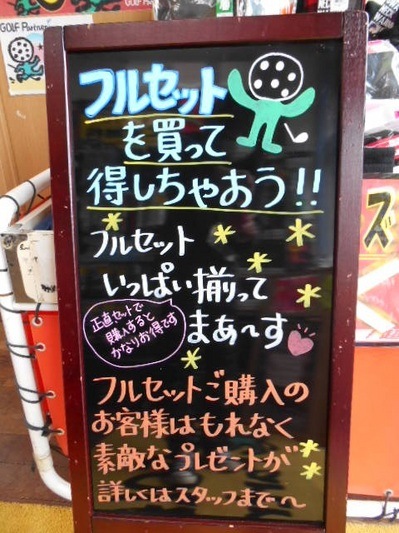 GOLF Partner
フルセット
を買って
得しちゃおう!!
フルセット
いっぱい揃って
まぁ〜す
正直セットで
購入すると
かなりお得です
フルセットご購入の
お客様はもれなく
素敵なプレゼントが
詳しくはスタッフまで〜
ズ